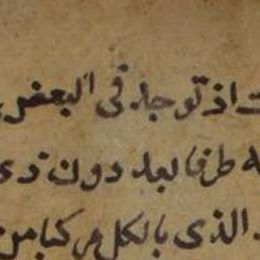 ت اذ توجد فى البعض
ه طرفا بعد دون ذى
الذى بالكل مركبا من